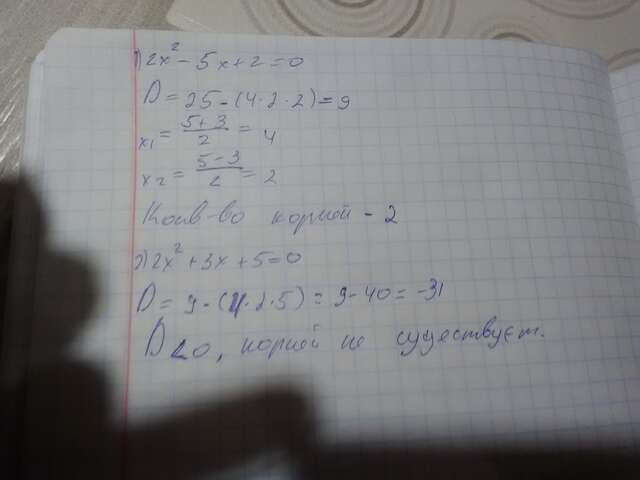 1) 2x² - 5x + 2 = 0
D = 25 - (4·2·2) = 9
x1 = 5+3/2 = 4
x2 = 5-3/2 = 2
Колв-во корней - 2
2) 2x² + 3x + 5 = 0
D = 9 - (4·2·5) = 9 - 40 = -31
D < 0, корней не существует.